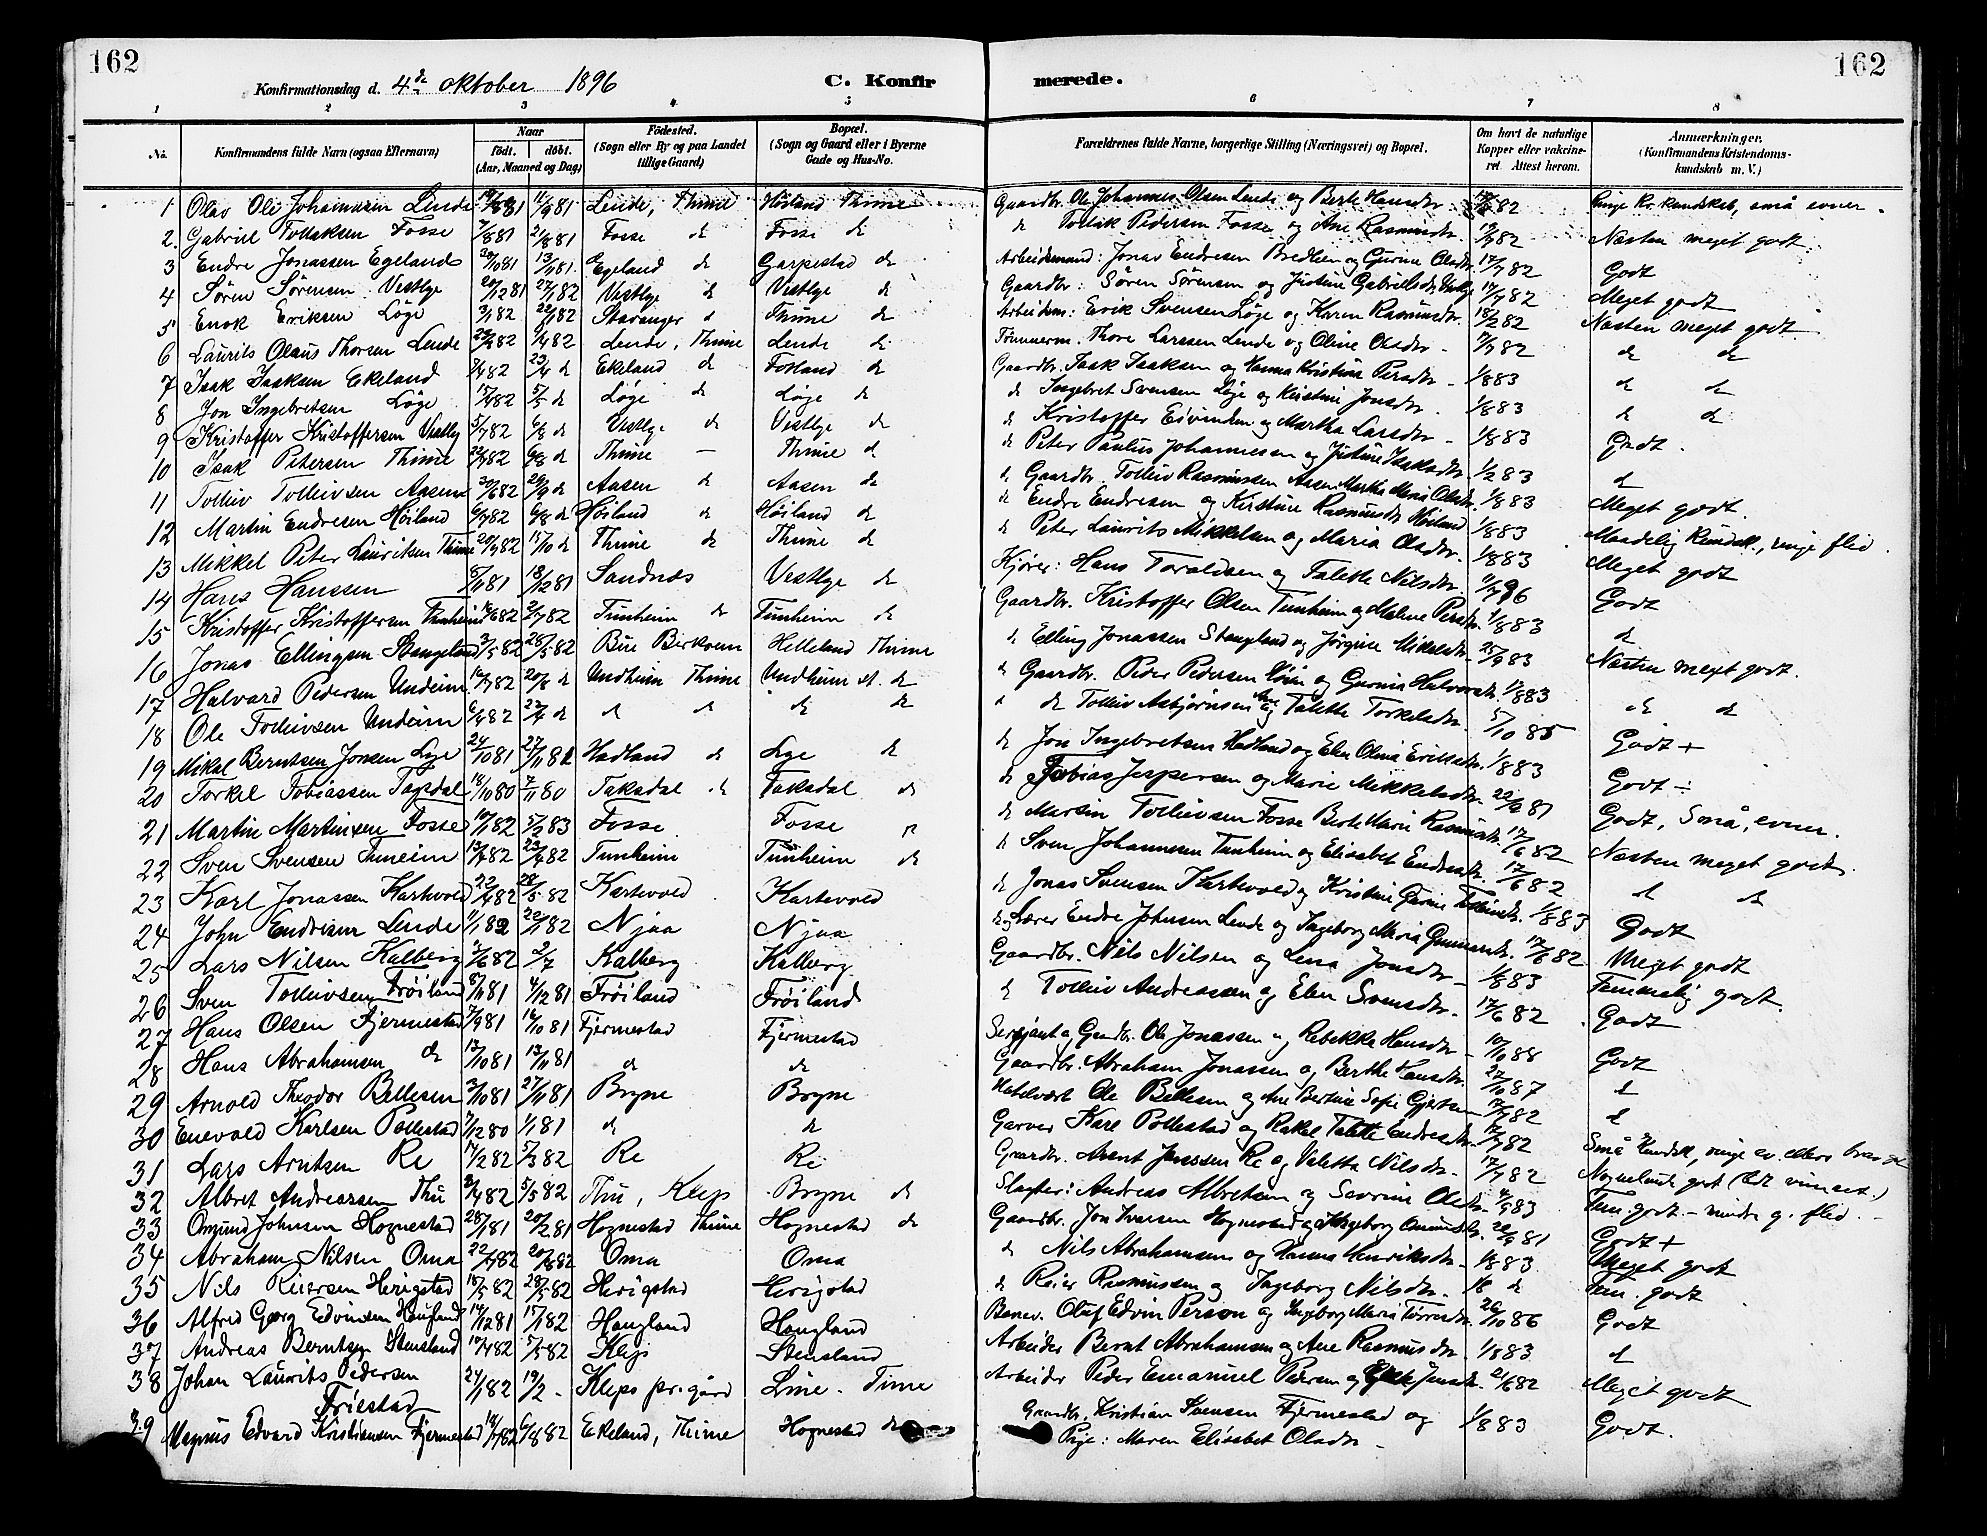 162
Konfirmationsdag d. 4de oktober 1896 C. Konfirmerede. 162
1 2 3 4 5 6 7 8
No. Konfirmandens fulde Navn (ogsaa Efternavn) Naar født. døbt. (Aar, Maaned og Dag) Fødested. (Sogn eller By og paa Landet tillige Gaard) Bopæl. (Sogn og Gaard eller i Byerne Gade og Hus-No. Forældrenes fulde Navne, borgerlige Stilling (Næringsvei) og Bopæl. Om havt de naturlige Kopper eller vakcineret. Attest herom. Anmærkninger. (Konfirmandens Kristendomskundskab m. V.)
1 Olav Ole Johannesen Lende 11/9 81 Lende, Thime Høiland Thime Gaardbr. Ole Johannes Olsen Lende og Berte Hansdtr. Ringe Kr. kundskab, små evner.
2. Gabriel Tollaksen Fosse 7/8 81 21/8 81 Fosse do Fosse do do Tollak Pedersen Fosse og Ane Rasmusdtr. Næsten meget godt.
3 Endre Jonassen Egeland 13/11 81 Egeland do Garpestad do Arbeidsmand: Jonas Endresen Bredlien og Gurine Olsdtr. 17/7 82 Godt
4 Søren Sørensen Vestlye 27/1 82 Vestlye do Vestlye do Gaardbr: Søren Sørensen og Jistine Gabrielsdtr 17/7 82 Meget godt
5 Enok Eriksen Løge Stavanger Thime do Arbeidsm: Erik Svensen Løge og Karen Rasmusdtr. 18/2 82 Næsten meget godt.
6 Laurits Olaus Thorsen Lende Lende, Thime Lende do Tømmerm. Thore Larssen Lende og Oline Olsdtr. do do
7 Isak Isaksen Ekeland 23/4 do Ekeland do Fosland do Gaardbr. Isak Isaksen og Hanna Kristine Persdtr. 1/8 83 do do
8 Jon Ingebretsen Løge 17/4 82 5/5 do Løge do Løge do do Ingebret Svensen Løge og Kirstine Jonsdtr. 1/8 83 do do
9 Kristoffer Kristoffersen Vestly 5/7 82 6/8 do Vestlye do Vestlye do do Kristoffer Eivinden og Martha Larsdtr 1/8 83 Godt.
10 Isak Petersen Thime 6/8 do Thime — Thime do do Peter Paulus Johannesen og Jistine Isaksdtr. 1/2 83 do
11 Tolliv Tollivsen Aasen Aasen do Aasen do do Gaardbr. Tolliv Rasmussen Aasen Martha Maria Olsdtr. 1/8 83 Meget godt.
12 Martin Endresen Høiland 6/7 82 6/8 do Høiland do Høiland do do Endre Endresen og Kirstine Rasmusdtr Høiland 1/8 83 Maadelig Kundsk., ringe flid.
13 Mikkel Peter Lauritsen Thime 20/9 82 15/10 do Thime do Thime do do Peter Laurits Mikkelsen og Maria Olsdtr. 1/8 83 Meget godt
14 Hans Hanssen 8/11 81 18/12 81 Sandnæs Vestlye do Kjører: Hans Toraldsen og Talette Nilsdtr. Godt
15 Kristoffer Kristoffersen Tunheim 2/7 82 Tunheim do Tunheim do Gaardbr. Kristoffer Olsen Tunheim og Malene Persdtr. 1/8 83 do
16 Jonas Ellingsen Stangeland 3/5 82 28/5 82 Bue Berkrem Helleland Thime do Elling Jonassen Stangland og Jørgine Mikalsdtr. 25/9 83 Næsten meget godt.
17 Halvard Pedersen Undeim 20/8 do Undheim Thime Undheim do Gaardbr. Peder Pedersen og Gurina Halvorsdtr. 1/8 83 do do
18 Ole Tollivsen Undeim 6/4 82 23/4 do do do do do do do Tolliv Asbjørnsen og Talette Torkelsdtr. 5/10 85 Godt +
19 Mikal Berntsen Jonsen Lye 24/10 81 27/11 81 Hadland do Lye do do Jon Ingebretsen Hadland og Elen Olina Eriksdtr. 1/8 83 Godt ÷
20 Torkel Tobiassen Tagsdal 18/10 80 7/11 80 Taksdal do Taksdal do do Tobias Jespersen og Marie Mikkelsdtr. Godt, Små, evner.
21 Martin Martinsen Fosse 5/2 83 Fosse Fosse do do Martin Tollivsen Fosse Berte Marie Rasmusdtr. 17/6 82 Næsten meget godt.
22 Sven Svensen Tuneim 23/4 82 Tunheim Tunheim do do Sven Johannesen Tunheim og Elisabet Endresdtr. 17/6 82 do do
23 Karl Jonassen Kartevold 22/4 82 28/5 82 Kartevold Kartevold do Jonas Svensen Kartevold og Kristine Gurine 1/8 83 Godt
24 John Endresen Lende 22/1 82 Njaa Njaa do Lærer Endre Johnsen Lende og Ingeborg Maria Gunnarsdtr. 17/6 82 Meget godt
25 Lars Nilsen Kalberg 5/6 82 2/7 Kalberg Kalberg Gaardbr. Nils Nilsen og Lena Jonsdtr 1/8 83 Temmelig godt.
26 Sven Tollivsen Frøiland 8/11 81 4/12 81 Frøiland Frøiland do Tolliv Andreassen og Elen Svensdtr. 17/6 82 Godt
27 Hans Olsen Fjermestad 7/9 81 16/10 81 Fjermestad Fjermestad Sersjant og Gaardbr. Ole Jonassen og Rebekka Hansdtr 10/10 88 Godt
28 Hans Abrahamsen do 13/10 81 13/11 81 do do Gaardbr. Abraham Jonassen og Berthe Hansdtr. 27/10 87 do
29 Arnold Theodor Bellesen 3/10 81 27/11 81 Bryne Bryne Hotelvært Ole Bellesen og Ane Bertine Sofie Gjertsen 17/7 82 do
30 Enevold Karlsen Pollestad 7/12 80 1/1 81 do do Garver Karl Pollestad og Rakel Talette Endresdtr. 17/7 82 Små Kundsk, ringe
31 Lars Arntsen Re 17/2 82 5/3 82 Re Re Gaardbr. Arent Jenssen Re og Valetta Nilsdtr 17/7 82 Nogenlunde godt
32 Albret Andreassen Thu 5/5 82 Thu, Klep Bryne do Slagter: Andreas Albretsen og Severine Olsdtr Tem. godt – mindre g. flid.
33 Omund Johnsen Hognestad 28/1 81 20/2 81 Hognestad Thime Hognestad do Gaardbr. Jon Ivarsen Hognestad og Ingeborg Omundsdtr. Godt +
34 Abraham Nilsen Oma 22/7 82 20/8 82 Oma Oma do Nils Abrahamsen og Hanna Henriksdtr. 1/8 83 Meget godt
35 Nils Reiersen Herigstad 18/5 82 28/5 82 Herigstad Herigstad do Reier Rasmussen og Ingeborg Nilsdtr. do Tem. godt
36 Alfred Georg Edvinsen Haugland 14/12 81 15/1 82 Haugland Haugland Banev. Oluf Edvin Person og Ingeborg Maria Tørresdtr 26/10 86 Godt
37 Andreas Berntsen Stensland 19/4 82 5/5 82 Klep Stensland Arbeider Bernt Abrahamsen og Ane Rasmusdtr. 1/8 83 do
38 Johan Laurits Pedersen Friestad 24/1 82 19/2 – Klepp pr. gård Line. Time Arbeider Peder Emanuel Petersen og Jensdtr. 21/6 82 Meget godt
39 Magnus Edvard Kristiansen Fjermestad 6/8 82 Eekeland, Thime Hognestad do Gaardbr. Kristian Svensen Fjermestad og Pige: Maren Elisabet Olsdtr – 1/8 83 Godt.